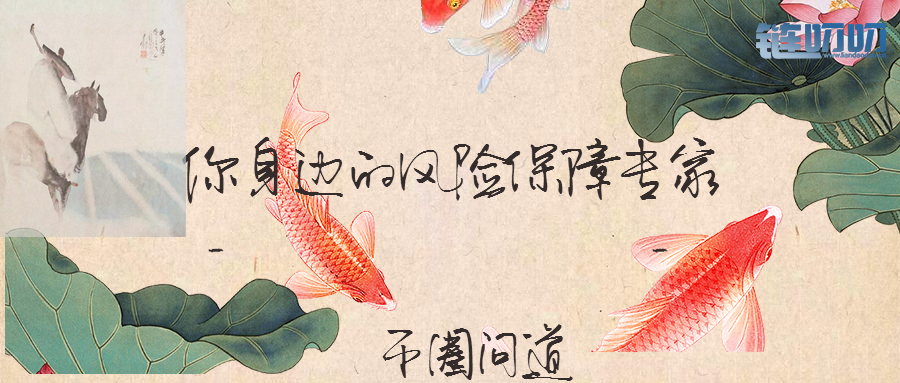 链叨叨
你身边的风险保障专家
币圈问道